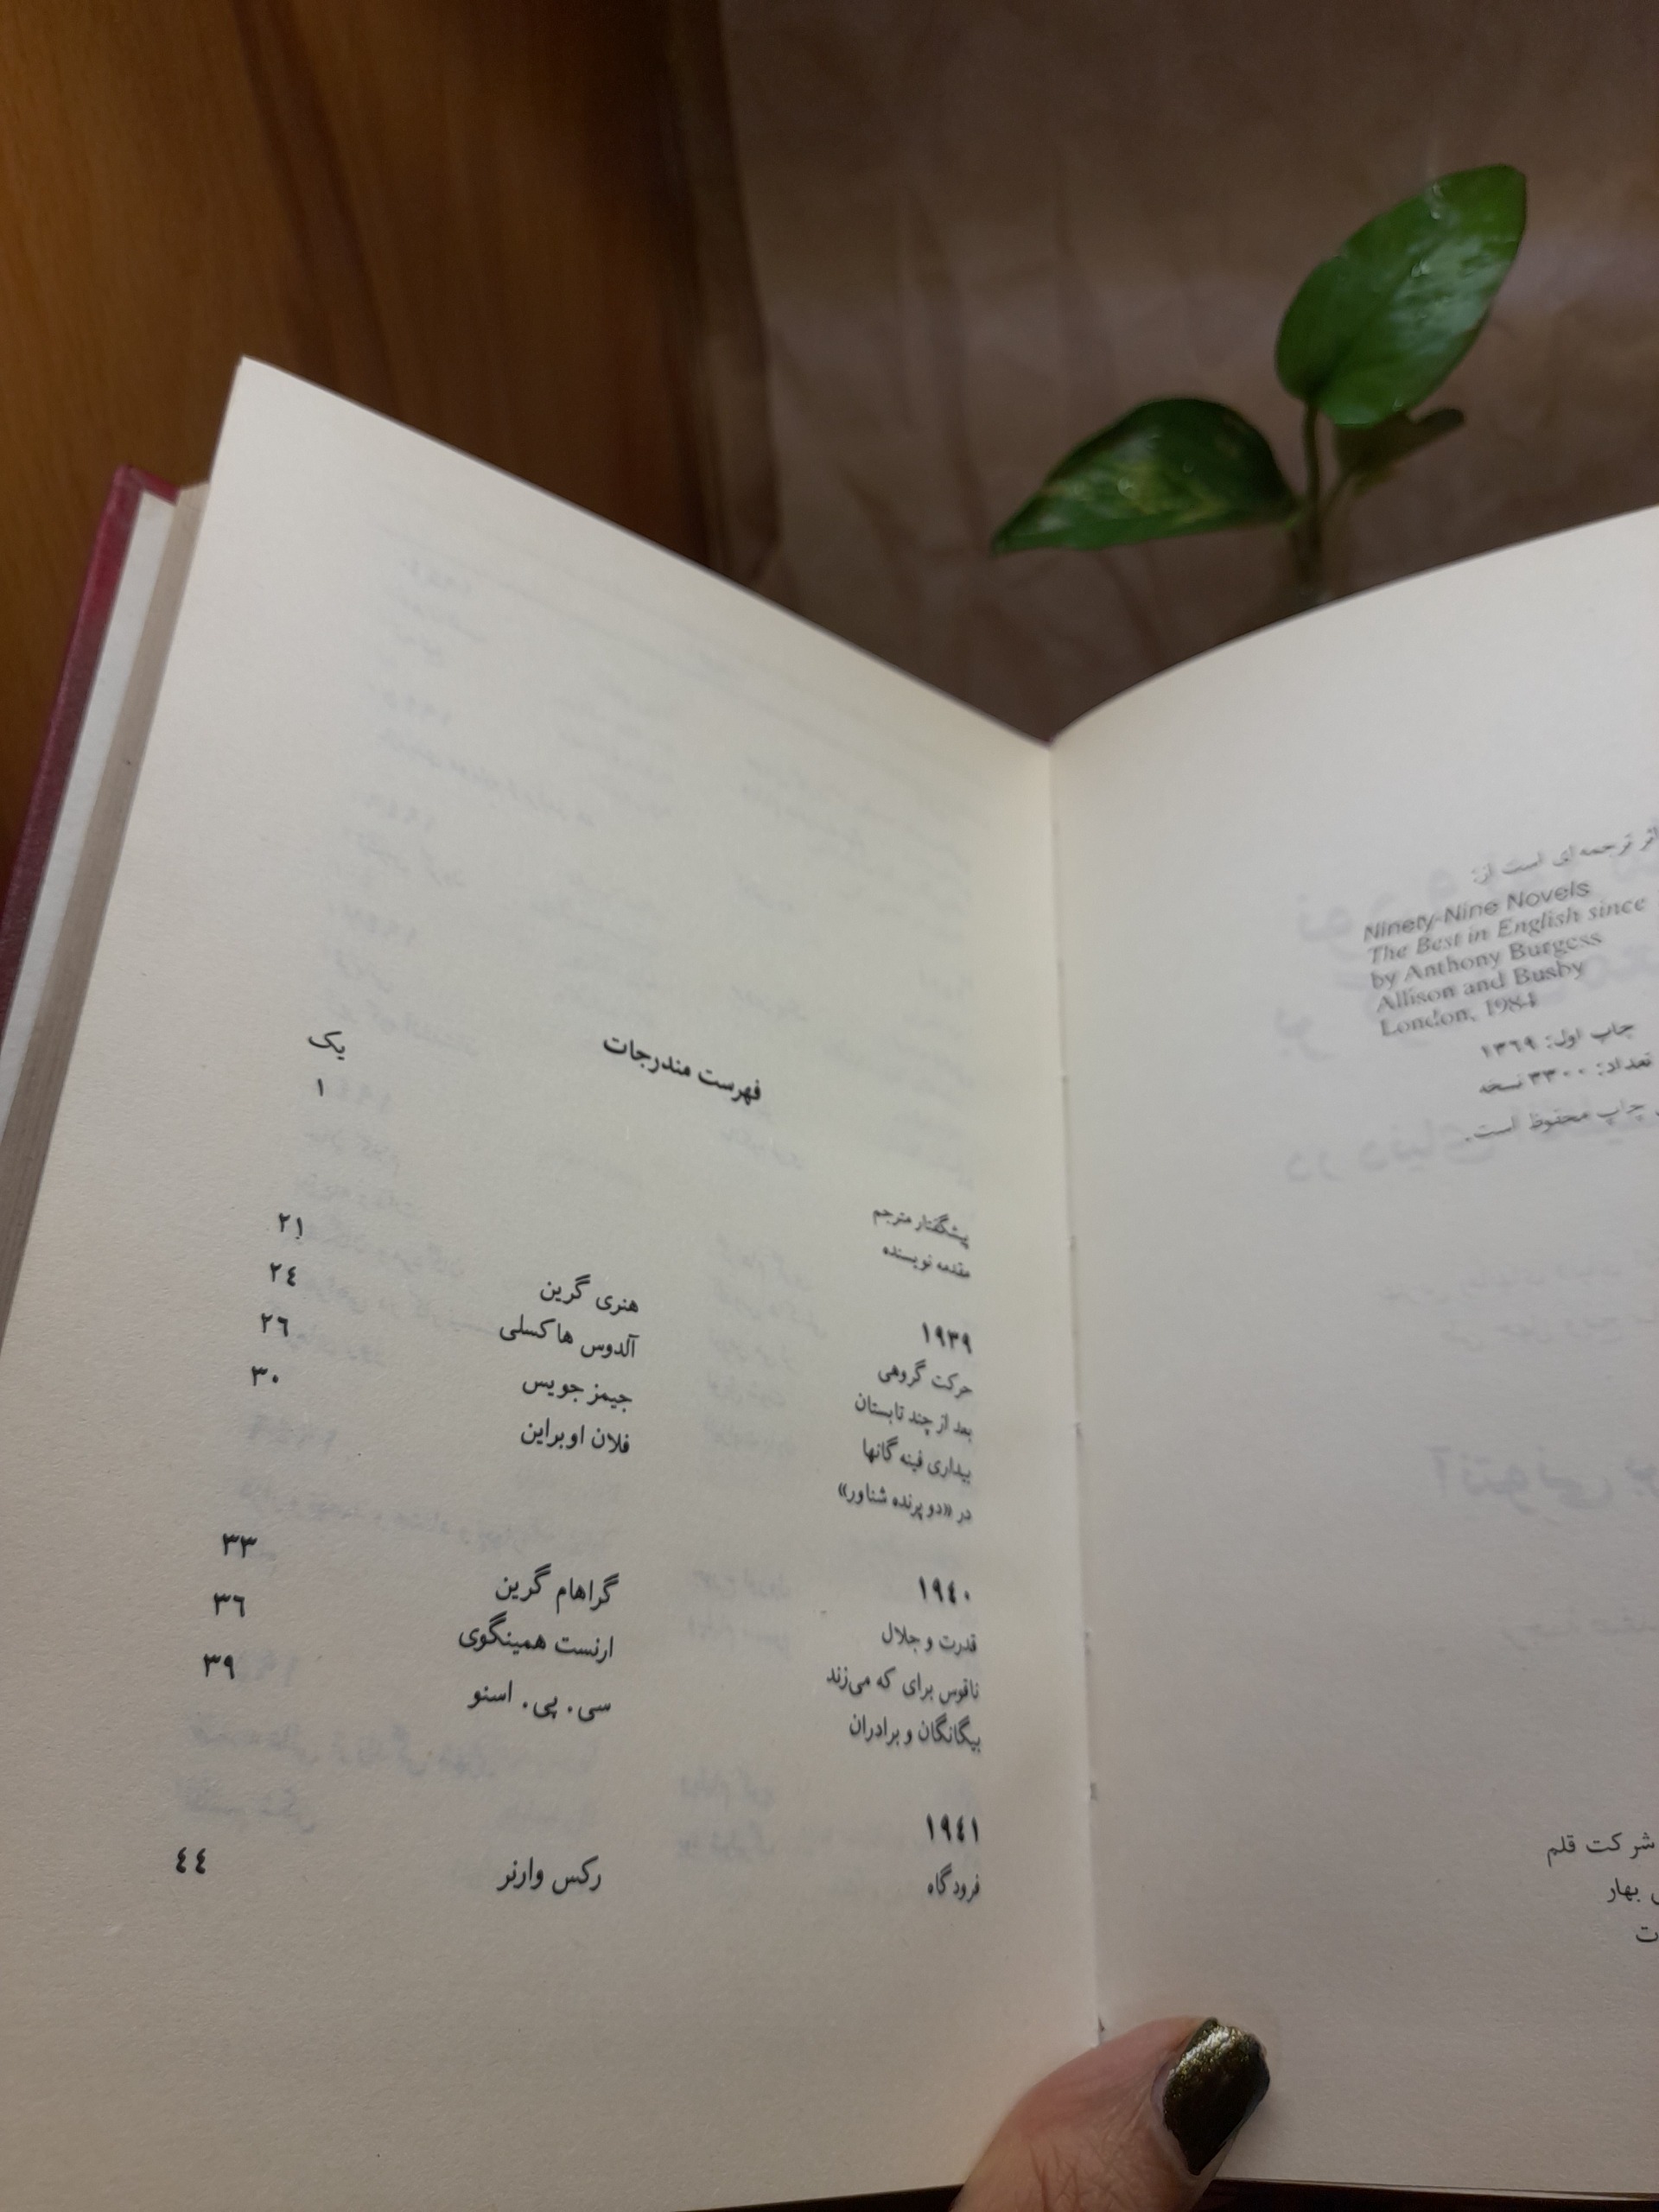 اثر ترجمه‌ای است از:
Ninety-Nine Novels
The Best in English since
by Anthony Burgess
Allison and Busby
London, 1984
چاپ اول: ۱۳۶۹
تعداد: ۳۳۰۰ نسخه
چاپ محفوظ است.
شرکت قلم
بهار
فهرست مندرجات
پیشگفتار مترجم یک
مقدمه نویسنده ۱
۱۹۳۹
حرکت گروهی هنری گرین ۲۱
بعد از چند تابستان آلدوس هاکسلی ۲٤
بیداری فینه گانها جیمز جویس ۲٦
در «دو پرنده شناور» فلان اوبراین ۳۰
۱۹٤۰
قدرت و جلال گراهام گرین ۳۳
ناقوس برای که می‌زند ارنست همینگوی ۳٦
بیگانگان و برادران سی. پی. اسنو ۳۹
۱۹٤۱
فرودگاه رکس وارنر ٤٤